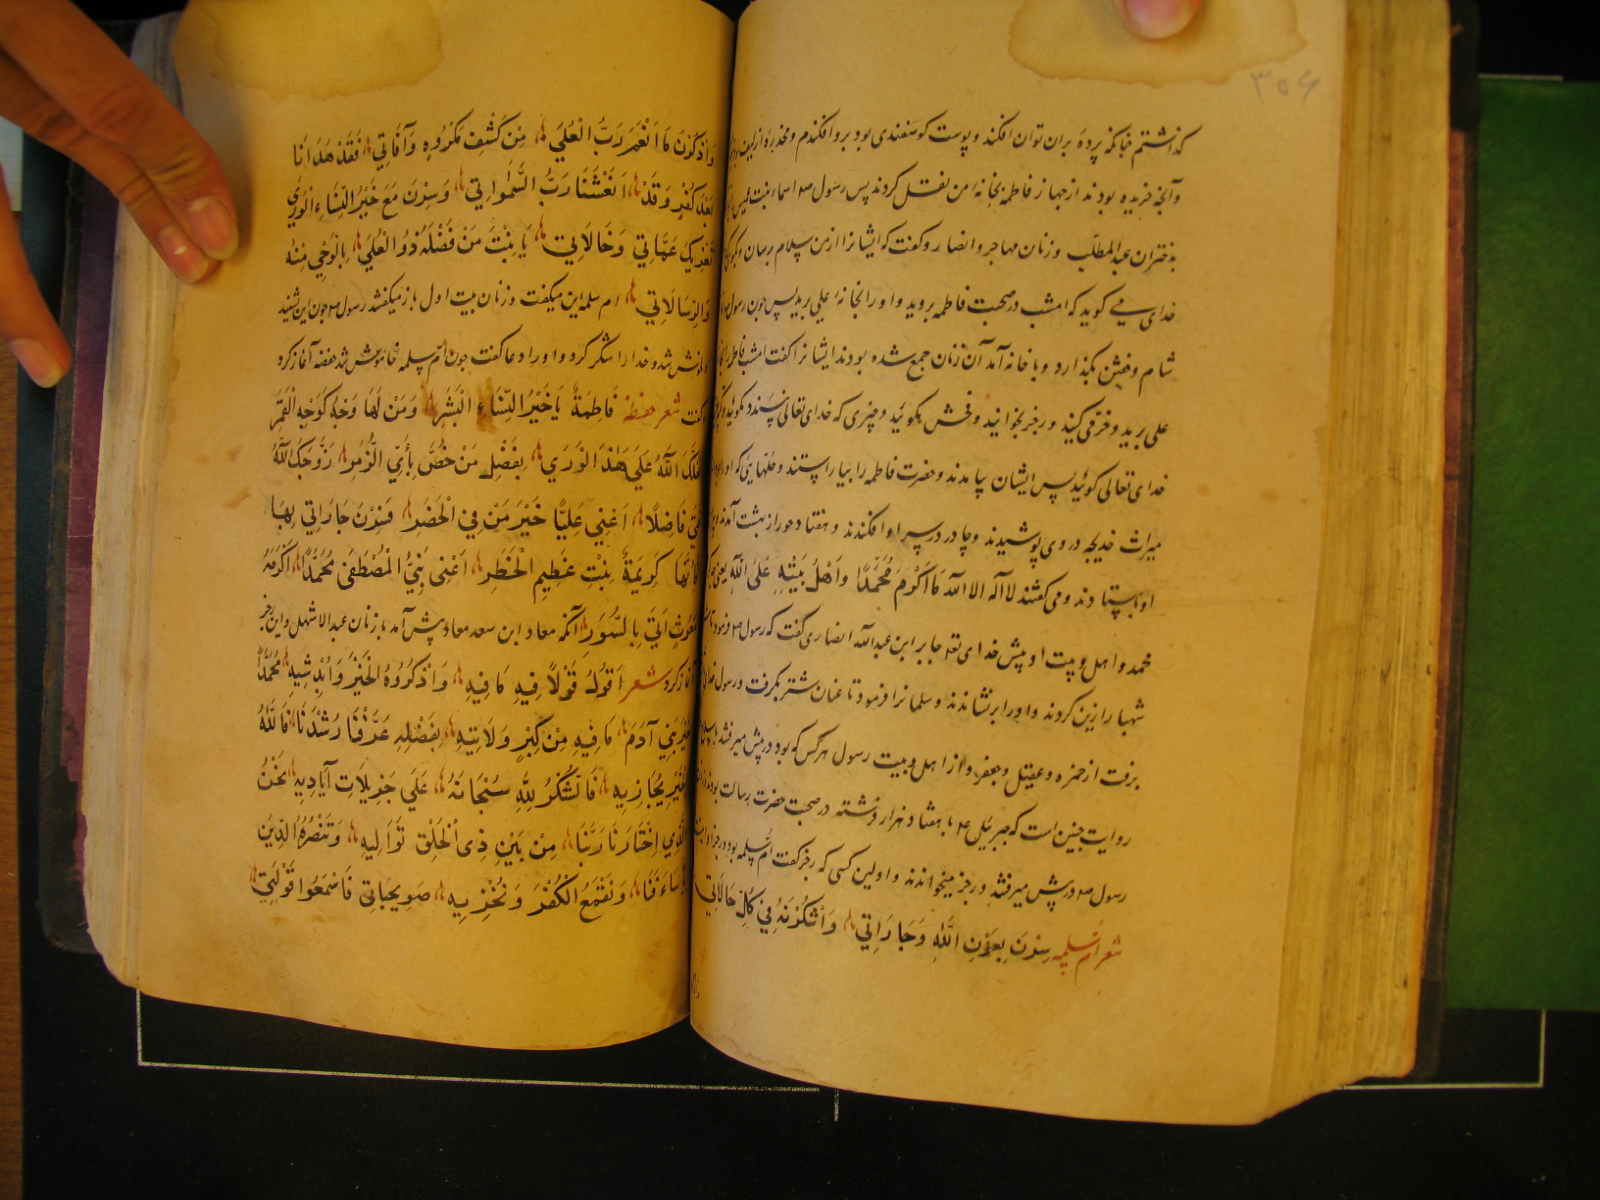 ۳۰۶
گذاشتم چنانکه پرده بران توان افکند و پوست کوسفندی بود برو افکندم و مخدره از لیف
وآنچه خریده بودند از جهاز فاطمه بخانه من نقل کردند پس رسول ص اسماء بنت عمیس
دختران عبدالمطلب و زنان مهاجر و انصار و گفت که ایشانرا از من سلام برسان و بگو
خدای می کوید که امشب در صحبت فاطمه بروید و او را بخانۀ علی برید پس چون رسول
شام و خفتن بگذارد و با خانه آمد آن زنان جمع شده بودند ایشانرا گفت امشب فاطمه را
علی برید و خرمی کنید و رجز بخوانید و فحش مکوئید و چیزی که خدای تعالی نپسندد مکوئید
خدای تعالی کوئید پس ایشان بیامدند و حضرت فاطمه را بیاراستند و حلهایی که او را
میراث خدیجه در وی پوشیدند و چادر در سر او افکندند و هفتاد حور از بهشت آمدند
او بایستادند و می گفتند لا اله الا الله مَا اَکْرَمَ مُحَمَّدًا وَاَهْلَ بَیْتِهِ عَلَی اللهِ یعنی
محمد و اهل و بیت او پیش خدای تعه جابر ابن عبدالله انصاری گفت که رسول ص فرمود تا
شهبا را زین کردند و او را برنشاندند و سلمانرا فرمود تا عنان شتر بگرفت و رسول
برفت از حمزه و عقیل و جعفر و از اهل و بیت رسول هر کس که بود در پیش میرفتند
روایت چنین است که جبرئیل ع با هفتاد هزار فرشته در صحبت حضرت رسالت بودند
رسول ص در پیش میرفتند و رجز میخواندند و اولین کسی که رجز گفت ام سلمه بود و رجز او
شعر ام سلمه سِرْنَ بِعَوْنِ اللهِ وَجَارَاتِي وَاشْكُرْنَهُ فِي كُلِّ حَالَاتِي
وَاذْكُرْنَ مَا اَنْعَمَ رَبُّ الْعُلَى مِنْ كَشْفِ مَكْرُوهٍ وَآفَاتِي فَقَدْ هَدَانَا
بَعْدَ كُفْرٍ وَقَدْ اَنْعَشَنَا رَبُّ السَّمٰوَاتِي وَسِرْنَ مَعَ خَيْرِ النِّسَاءِ الْوَرٰي
تُفْدٰيكَ عَمَّاتِي وَخَالَاتِي يَا بِنْتَ مَنْ فَضَّلَهُ ذُو الْعُلَى بِالْوَحْيِ مِنْهُ
وَالرِّسَالَاتِي ام سلمه این میگفت و زنان بیت اول باز میگفتند رسول ص چون این شنید
خوش شد و خدا را شکر کرد و او را دعا گفت چون ام سلمه خاموش شد حفصه آغاز کرد
گفت شعر حفصه فَاطِمَةُ يَا خَيْرُ النِّسَاءِ الْبَشَرِ وَمَنْ لَهَا وَجْهٌ كَوَجْهِ الْقَمَرِ
فَضَّلَكَ اللهُ عَلَى هٰذَا الْوَرٰي بِفَضْلِ مَنْ خُصَّ بِاٰيِ الزُّمَرِ زَوَّجَكَ اللهُ
فَتًي فَاضِلًا اَعْنِي عَلِيًّا خَيْرَ مَنْ فِي الْحَضَرِ فَسِرْنَ جَارَاتِي بِهَا
فَاِنَّهَا كَرِيمَةٌ بِنْتِ عَظِيمِ الْخَطَرِ اَعْنٰى بَنِيُّ الْمُصْطَفٰى مُحَمَّدًا اَكْرَمُهُ
اَتٰي بِالسُّوَرِ آنکه معاذ ابن سعد معاذ پیش آمد با زنان عبدالاشهل و این رجز
آغاز کرد شعر اَقُولُ قَوْلًا فِيهِ مَا فِيهِ وَاذْكُرُوهُ الْخَيْرُ وَاُبْدِيهِ مُحَمَّدٌ
خَيْرُ بَنِي آدَمَ مَا فِيهِ مِنْ كِبْرٍ وَلَاتِيهِ بِفَضْلِهِ عَرَّفْنَا رُشْدَنَا فَاللهُ
بِالْخَيْرِ يُجَازِيهِ فَالشُّكْرُ لِلّٰهِ سُبْحَانَهُ عَلَي جَزِيلَاتِ آيَادِيهِ نَحْنُ
الَّذِي اِخْتَارَنَا رَبَّنَا مِنْ بَيْنِ ذِي الْخَلْقِ تَوَالِيهِ وَنَنْصُرُهُ الدِّينَ
وَنَقْمَعُ الْكُفْرَ وَنُخْزِيهِ صَوِيحِبَاتِي فَاسْمَعُوا قَوْلَتِي